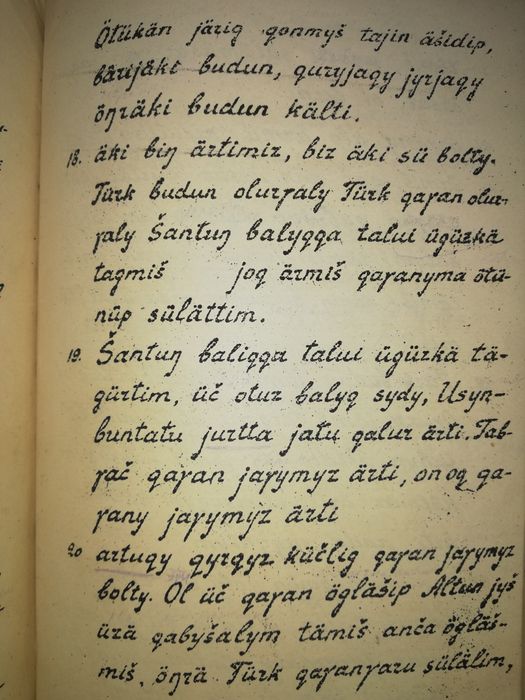 Ötükän järig qonmyš tajin äšidip,
bärijäki budun, quryjaqy jyrjaqy
öŋräki budun kälti.
18. äki biŋ ärtimiz, biz äki sü bolty.
Türk budun olurγaly Türk qaγan olur-
γaly Šantuŋ balyqqa talui ügüzkä
tagmiš joq ärmiš qaγanyma ötü-
nüp sülättim.
19. Šantuŋ baliqqa talui ügüzkä tä-
gürtim, üč otuz balyq sydy, Usyn-
buntatu jurtta jatu qalur ärti. Tab-
γač qaγan jaγymyz ärti, on oq qa-
γany jaγymyz ärti
20 artuqy qyrqyz küčlig qaγan jaγymyz
bolty. Ol üč qaγan ögläšip Altun jyš
üzä qabyšalym tämiš anča ögläš-
miš, öŋrä Türk qaγanγaru sülälim,